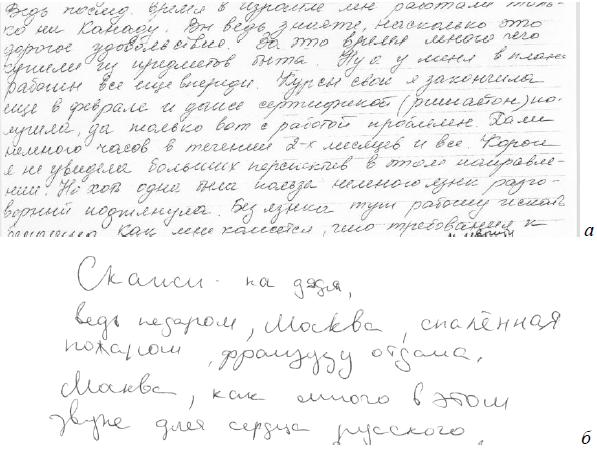 Ведь послед. время в Израиле мы работали толь-
ко на Канаду. Вы ведь знаете, насколько это
дорогое удовольствие. За это время много чего
купили из предметов быта. Ну а у меня в плане
работы все еще впереди. Курсы свои я закончила
еще в феврале и даже сертификат по-
лучила, да только вот с работой проблем. Дали
немного часов в течении 2-х месяцев и все. Короче
я не увидела больших перспектив в этом направле-
нии. Но хоть одна была польза немного язык разго-
ворный подтянула. Без языка тут работу искать
как мне кажется, что требования к
а
Скажи-ка дядя,
ведь недаром, Москва, спалённая
пожаром, французу отдана.
Москва, как много в этом
звуке для сердца русского.
б